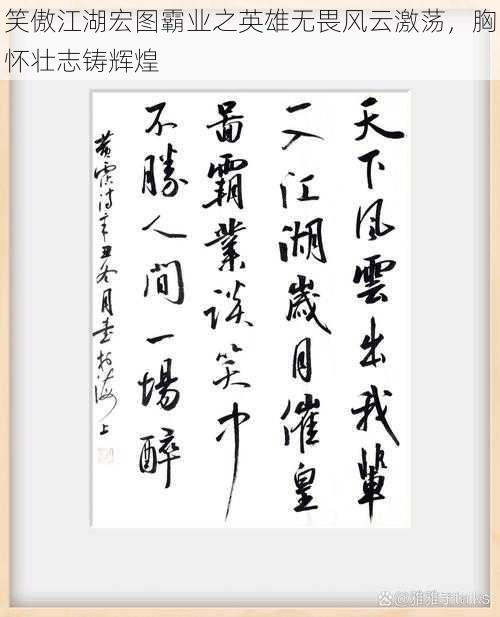 笑傲江湖宏图霸业之英雄无畏风云激荡，胸
怀壮志铸辉煌
天下風雲出我輩
一入江湖歲月催皇
啚霸業談笑中
不勝人間一場醉
黄霑诗辛丑冬月書於海上
@雅雅子talks